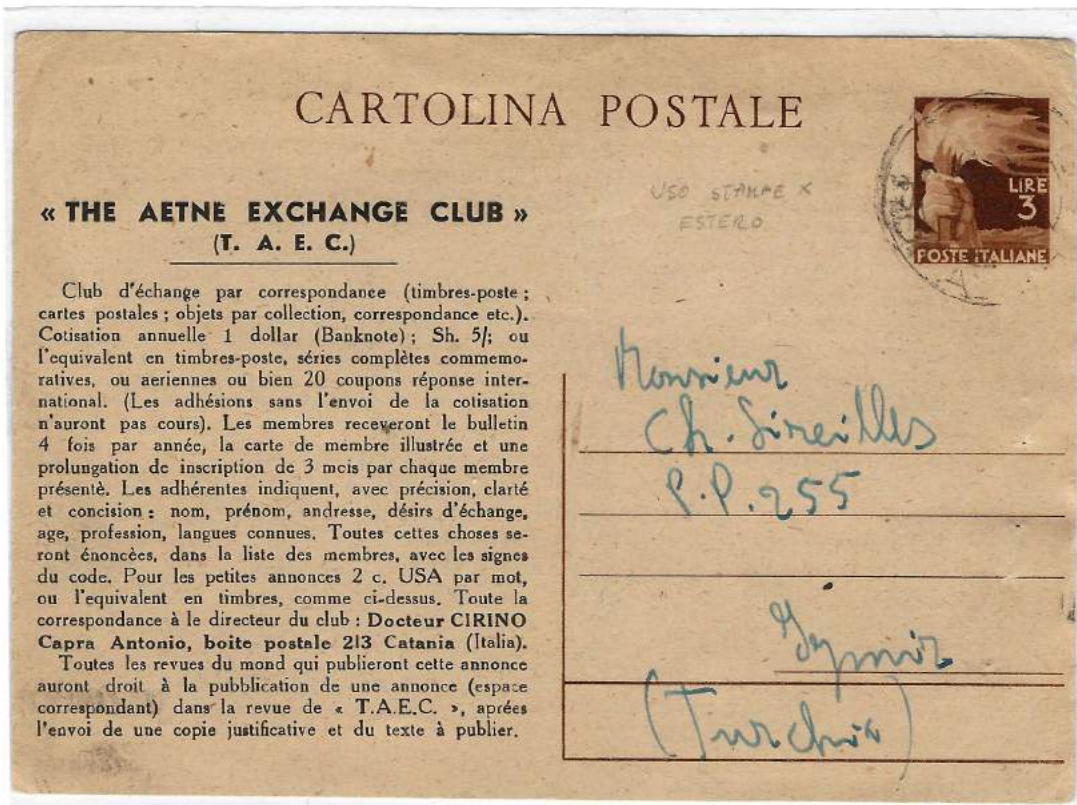 CARTOLINA POSTALE
LIRE
3
POSTE ITALIANE
USO STAMPE X
ESTERO
« THE AETNE EXCHANGE CLUB »
(T. A. E. C.)
Club d'échange par correspondance (timbres-poste ;
cartes postales ; objets par collection, correspondance etc.).
Cotisation annuelle 1 dollar (Banknote) ; Sh. 5/; ou
l'equivalent en timbres-poste, séries complètes commemo-
ratives, ou aeriennes ou bien 20 coupons réponse inter-
national. (Les adhésions sans l'envoi de la cotisation
n'auront pas cours). Les membres receveront le bulletin
4 fois par année, la carte de membre illustrée et une
prolungation de inscription de 3 mois par chaque membre
présentè. Les adhérentes indiquent, avec précision, clarté
et concision : nom, prénom, andresse, désirs d'échange,
age, profession, langues connues. Toutes cettes choses se-
ront énoncèes, dans la liste des membres, avec les signes
du code. Pour les petites annonces 2 c. USA par mot,
ou l'equivalent en timbres, comme ci-dessus. Toute la
correspondance à le directeur du club : Docteur CIRINO
Capra Antonio, boite postale 213 Catania (Italia).
Toutes les revues du mond qui publieront cette annonce
auront droit à la pubblication de une annonce (espace
correspondant) dans la revue de « T.A.E.C. », aprées
l'envoi de une copie justificative et du texte à publier.
Monsieur
Ch. Sireilles
P.P. 255
Izmir
(Turchia)